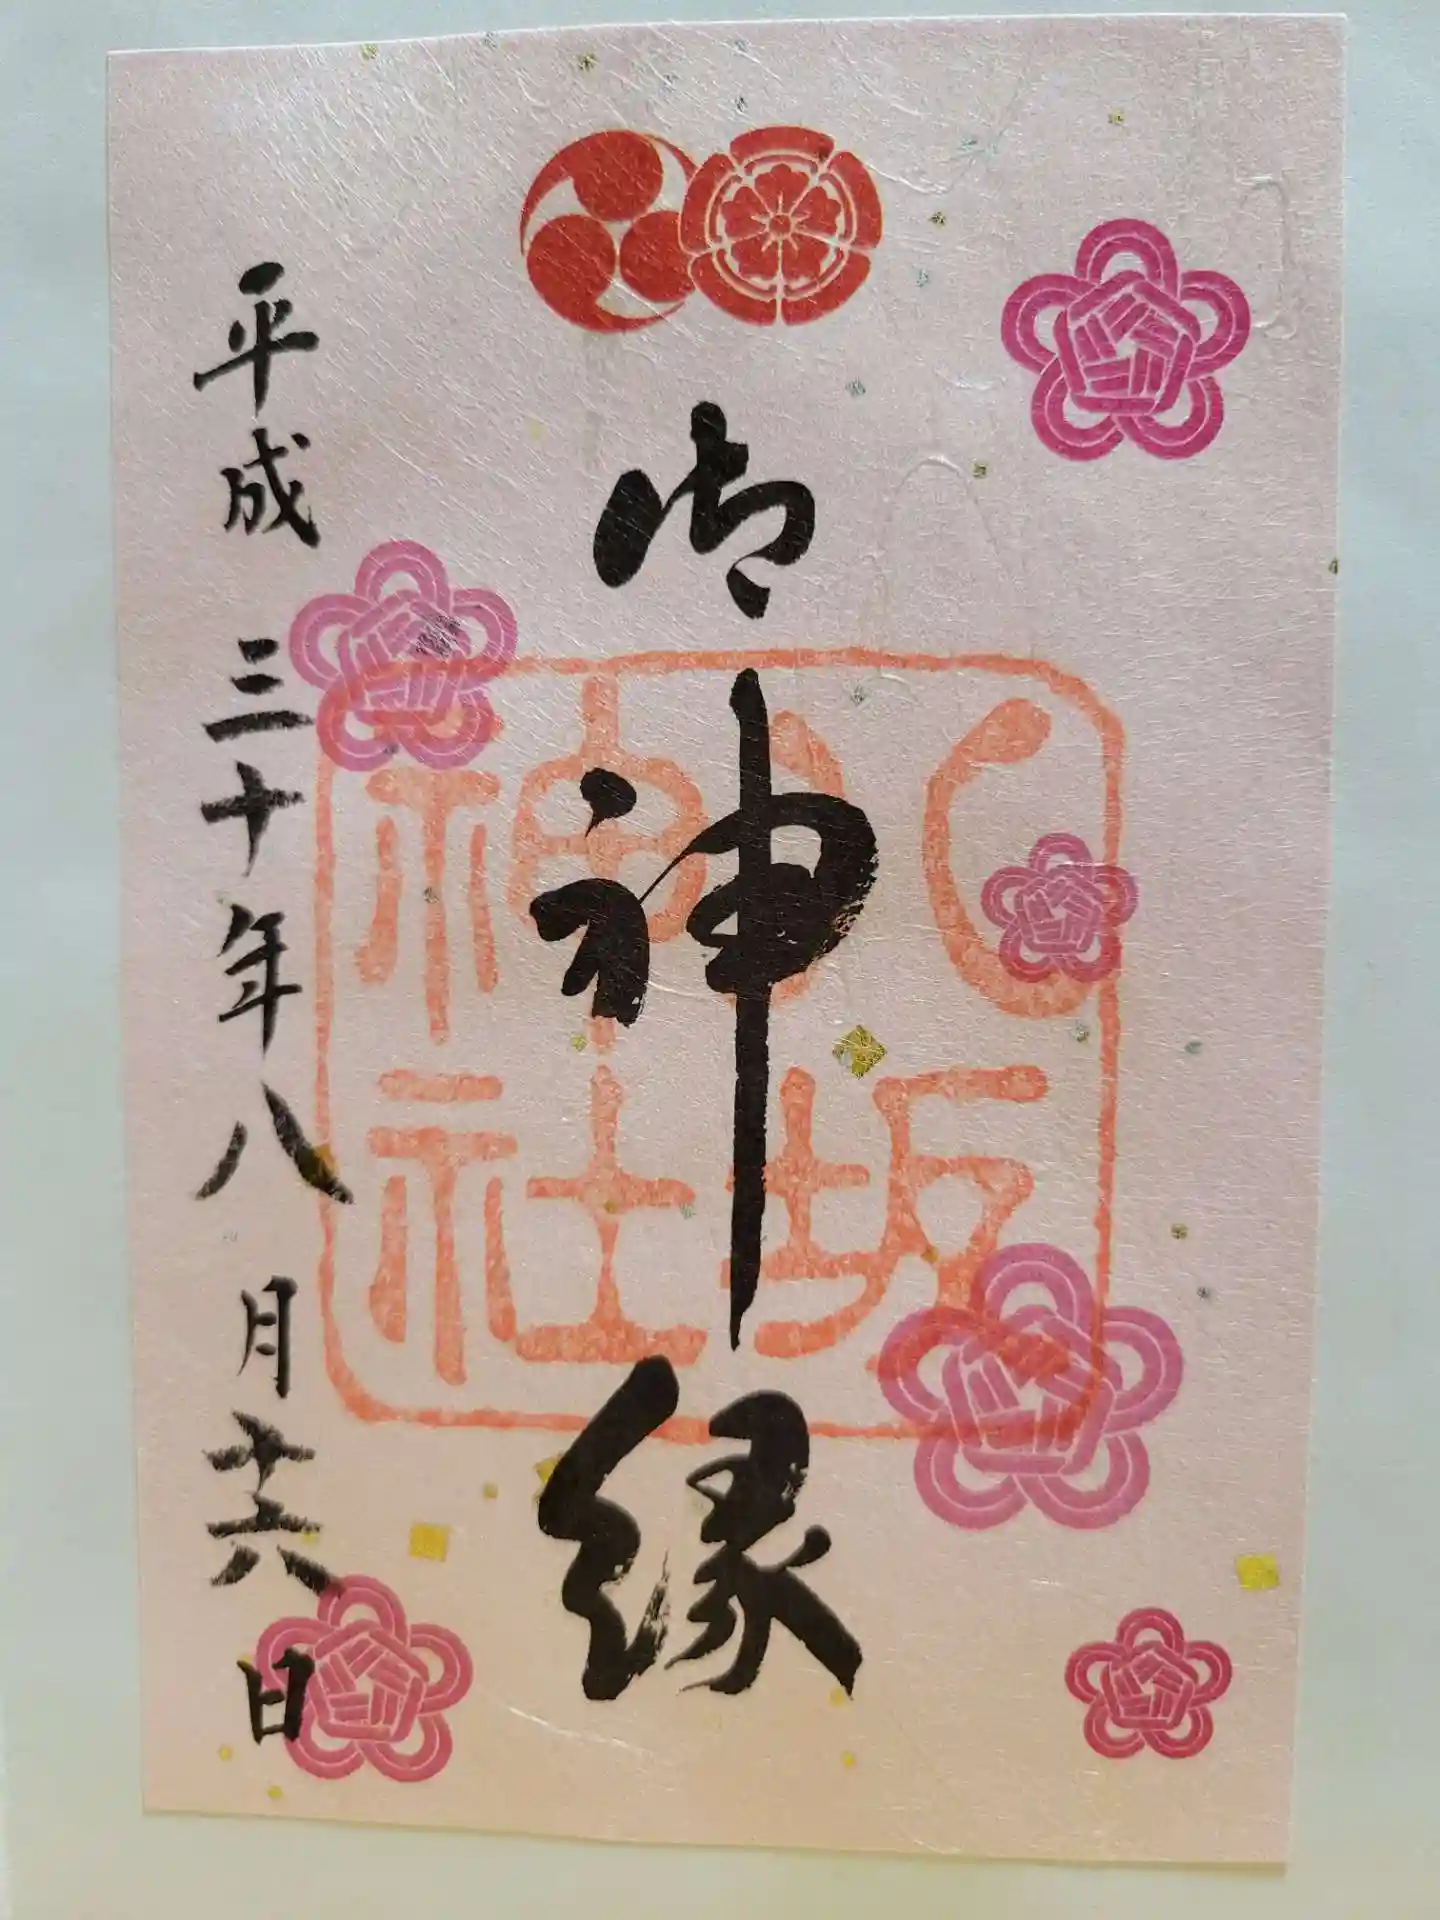 御神縁
八坂神社
平成三十年八月十六日